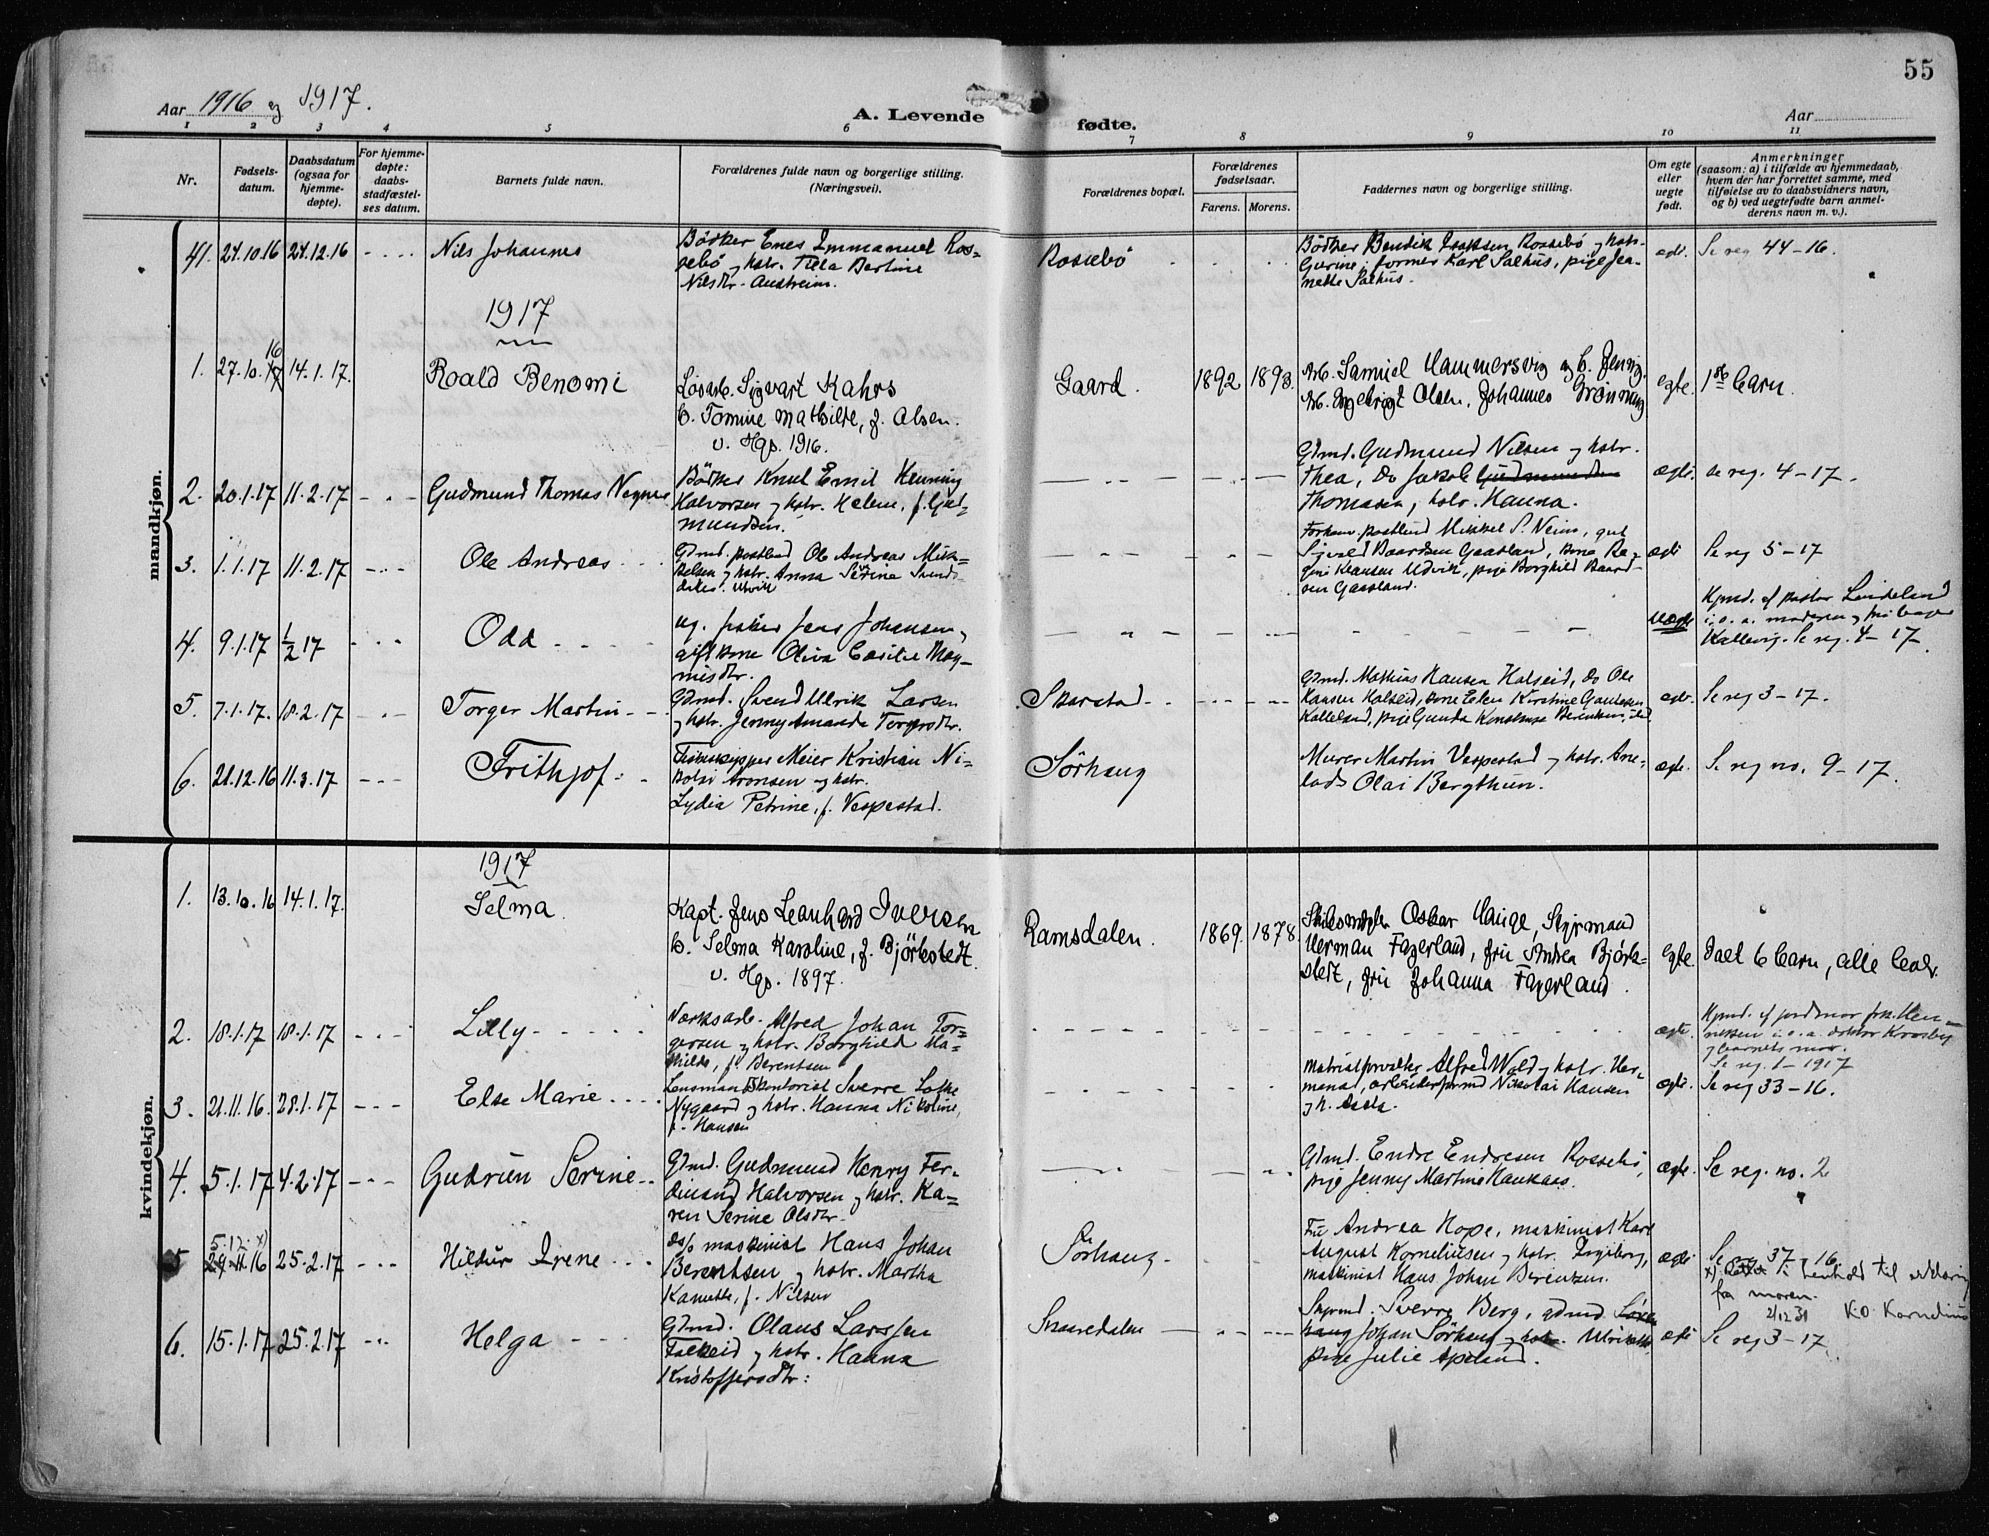 55
Aar 1916 og 1917.
A. Levende fødte.
Aar
1 2 3 4 5 6 7 8 9 10 11
Nr.
Fødsels-
datum.
Daabsdatum
(ogsaa for
hjemme-
døpte).
For hjemme-
døpte:
daabs-
stadfæstel-
ses datum.
Barnets fulde navn.
Forældrenes fulde navn og borgerlige stilling.
(Næringsvei).
Forældrenes bopæl.
Forældrenes
fødselsaar.
Farens. Morens.
Faddernes navn og borgerlige stilling.
Om egte
eller
uegte
født.
Anmerkninger
(saasom: a) i tilfælde av hjemmedaab,
hvem der har forrettet samme, med
tilføielse av to daabsvidners navn,
og b) ved uegtefødte barn anmel-
derens navn m. v.).
mandkjøn.
41. 24.10.16 24.12.16 Nils Johannes
Bödker Enes Immanuel Ros-
sebö og hstr. Tilla Bertine
Nilsdtr. Austreim.
Rossebö
Bödker Bendik Isaksen Rossebö og hstr.
Gurine, former Karl Salhus, pige Jea-
nette Salhus.
egte. Se reg 44-16.
1917
1. 27.10.16 14.1.17. Roald Benomi
Løsarb. Sigvart Kahrs
h. Tomine Mathilde, f. Olsen.
v. Hgs. 1916.
Gaard. 1892 1893.
Arb. Samuel Hammersvig og h. Jenny.
Arb. Ingebrigt Olsen, Johannes Grønning
egte. 1ste barn.
2. 20.1.17 11.2.17 Gudmund Thomas Negnes
Bödker Knut Emil Henning
Halvorsen og hstr. Helene, f. Gud-
mundsen.
Gbmd. Gudmund Nilsen og hstr.
Thea, do Jakob Gudmundsen
Thomasen, hstr. Hanna.
ægte. se reg. 4-17.
3. 1.1.17 11.2.17 Ole Andreas
Gbmd. postbud Ole Andreas Mik-
kelsen og hstr. Anna Serine Svends-
datter. Utvik
Forhenv. postbud Mikkel S. Neim, gut
Sigvald Baardsen Gaasland, kone Re-
gine Klausen Udvik, pige Borghild Baard-
sen Gaasland.
ægte Se reg 5-17
4. 9.1.17 1/2 17 Odd
ug. fisker Jens Johansen,
gift kone Oliva Cecilie Mag-
nisdtr.
uægte
Hjmd. af pastor Lindeland
i.o.a. moderen og
Kallevig. Se reg. 4-17.
5. 7.1.17. 18.2.17 Torger Martin
Gbmd. Svend Ulrik Larsen
og hstr. Jenny Amanda Torgersdtr.
Skarstad
Gbmd. Mathias Hansen Halseid, do Ole
Hansen Halseid, kone Elen Kirstine Gautesen
Kalleland, pige Gunda Konstanse Berentsen, ibid
ægte. Se reg 3-17.
6. 21.12.16 11.3.17 Frithjof
Fiskeskipper Meier Kristian Ni-
kolai Aronsen og hstr.
Lydia Petrine, f. Vespestad.
Sörhaug
Murer Martin Vespestad og hstr. Ane-
Olai Bergthun.
ægte. Se reg no. 9-17.
kvindekjøn.
1917
1. 13.10.16 14.1.17. Selma.
Kapt. Jens Leonhard Iversen
h. Selma Karoline, f. Bjørkstedt.
v. Hgs. 1897.
Ramsdalen. 1869. 1878.
Skibsmægler Oskar Hauge, Styrmand
Herman Fagerland, fru Andrea Bjørk-
stedt, fru Johanna Fagerland.
egte. Ialt 6 barn, alle lever.
2. 18.1.17 18.1.17 Lilly
Værksarb. Alfred Johan Tor-
gersen og hstr. Borghild Ma-
thilde, f. Berentsen
ægte.
Hjmd. af jordmor frk. Hen-
riksen i.o.a. doktor Krosby
og barnets mor.
Se reg. 1-1917
3. 21.11.16. 28.1.17 Else Marie
Lensmandskontorist Sverre Lothe
Nygaard og hstr. Hanna Nikoline,
f. Hansen
Matrialforvalter Alfred Wold og hstr. Her-
manda, arbeiderformd Nikolai Hansen
og h. Asta.
ægte. Se reg 33-16.
4. 5.1.17 4.2.17 Gudrun Serine
Gbmd. Gudmund Henry Fer-
dinand Halvorsen og hstr. Ka-
ren Serine Olsdtr.
Gbmd. Endre Endresen Rossebö,
pige Jenny Martine Haukaas.
ægte. Se reg. no. 2
5 5.12. x) 29.11.16 25.2.17 Hildur Irene
ds/s maskinist Hans Johan
Berentsen og hstr. Martha
Kanutte, f. Nilsen
Sörhaug
Fru Andrea Hope, maskinist Karl
August Korneliussen og hstr. Ingeborg,
maskinist Hans Johan Berentzen.
ægte
Se reg 37-16
x) i henhold til erklæring
fra moren.
2/12 31 K.O. Kornelius
6. 15.1.17 25.2.17 Helga
Gbmd. Olaus Larssen
Falkeid og hstr. Hanna
Kristoffersdtr:
Snaredalen
Styrmd. Sverre Berg, gbmd Sören
haug Johan Sörhaug og hstr. Ulrikke,
pige Julie Apeland.
ægte Se reg 3-17